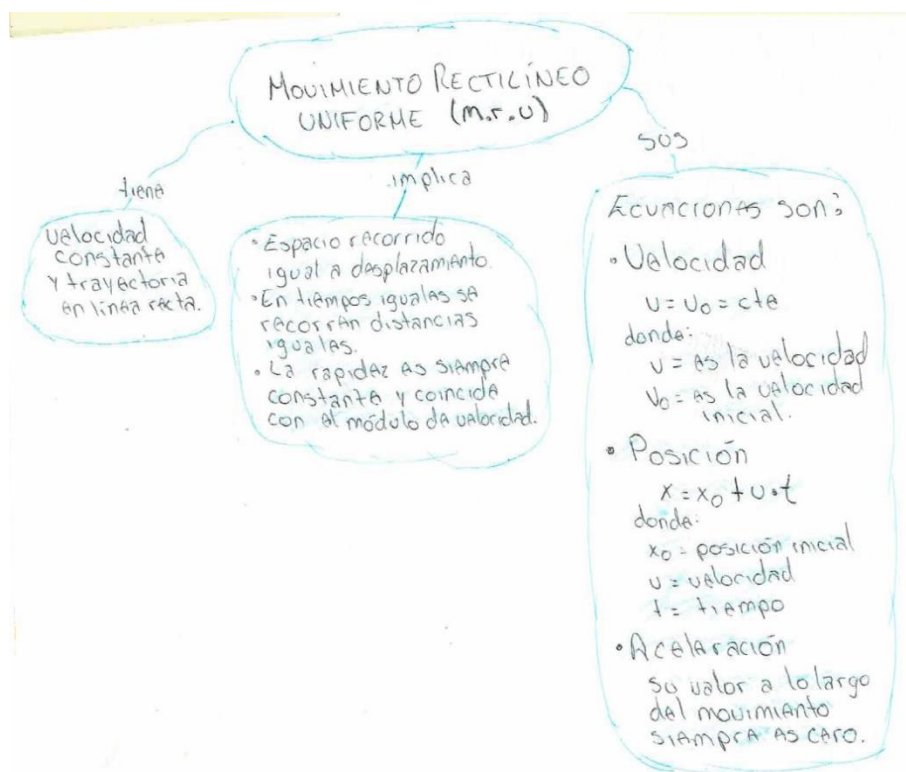 MOVIMIENTO RECTILÍNEO
UNIFORME (m.r.u)
tiene
velocidad
constante
y trayectoria
en línea recta.
implica
• Espacio recorrido
igual a desplazamiento.
• En tiempos iguales se
recorren distancias
iguales.
• La rapidez es siempre
constante y coincide
con el módulo de velocidad.
sus
Ecuaciones son:
• Velocidad
v = v₀ = cte
donde:
v = es la velocidad
v₀ = es la velocidad
inicial.
• Posición
x = x₀ + v•t
donde:
x₀ = posición inicial
v = velocidad
t = tiempo
• Aceleración
su valor a lo largo
del movimiento
siempre es cero.